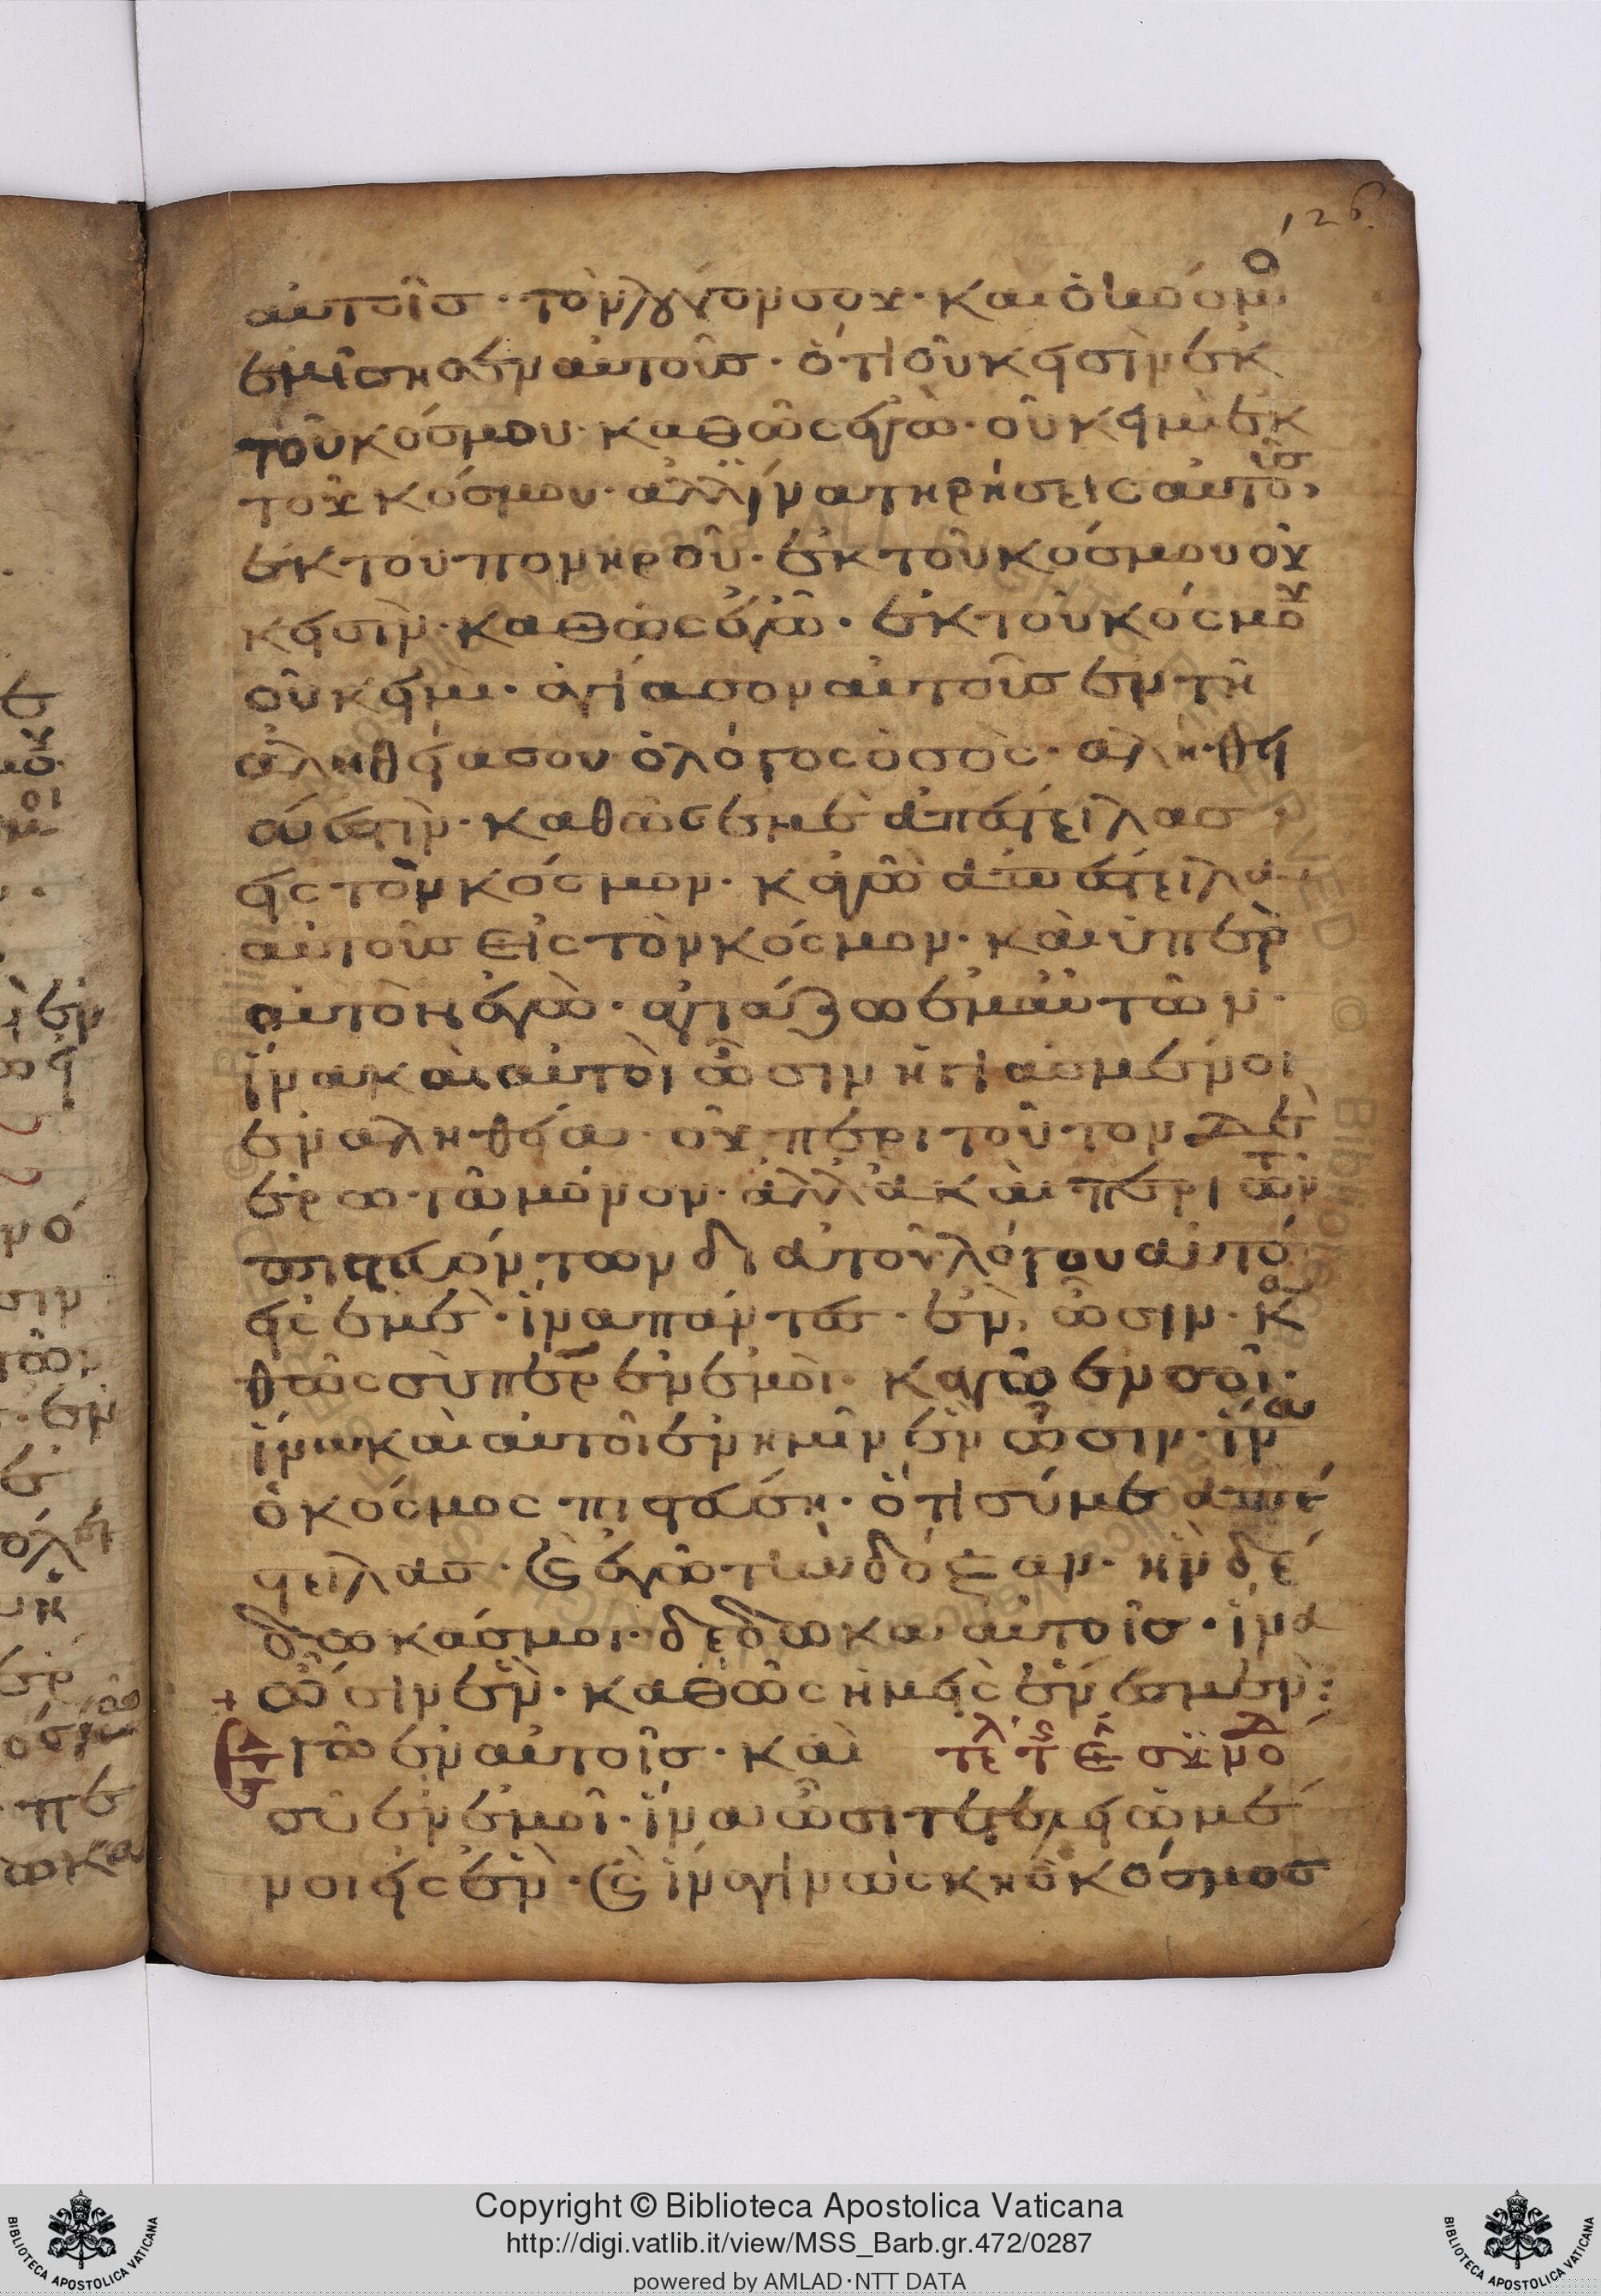 126
αὐτοῖσ · τὸν λόγον σου · και ὁ κόσμο
ἐμίσησεν αὐτοῖσ · ὅτι οὐκ εἰσὶν ἐκ
τοῦ κόσμου · καθὼς ἐγὼ · οὐκ εἰμὶ ἐκ
τοῦ κόσμου · ἀλλ ἵνα τηρήσεις αὐτοῖσ
ἐκ τοῦ πονηροῦ · ἐκ τοῦ κόσμου οὐ
κ εἰσὶν · καθὼς ἐγὼ · ἐκ τοῦ κόσμου
οὐκ εἰμι · ἁγίασον αὐτοῖσ ἐν τῆ
ἀληθεία σου · ὁ λόγος ὁ σὸς · ἀλήθει
ά ἐστιν · καθὼς ἐμὲ ἀπέστειλασ
εἰς τὸν κόσμον · κἀγὼ ἀπέστειλα
αὐτοῖσ εἰς τὸν κόσμον · καὶ ὑπὲρ
αὐτὸν ἐγὼ · ἁγιάζω ἐμαὐτῶν ·
ἵνα καὶ αὐτοὶ ὦσιν ἡγιασμένοι
ἐν αληθεία · οὐ περι τοῦτον δὲ
ἐρωτῶ μόνον · ἀλλὰ καὶ περι τῶν
πιστευόντων διὰ τοῦ λόγου αὐτό
εἰς ἐμὲ · ἵνα πάντεσ · ἐν, ὦσιν · κα
θὼς σὺ περ ἐν ἐμοὶ · καγὼ ἐν σοὶ ·
ἵνα καὶ αὐτοὶ ἐν ἡμῖν ἐν ὦσιν · ἵνα
ὁ κόσμος πιστεύση · ὅτι σύ με ἀπέ
στειλασ · καὶ ἐγὼ τὴν δόξαν · ἣν δέ
δωκάσ μοι · δέδωκα αὐτοῖσ · ἵνα
ὦσιν ἐν · καθὼς ἡμεῖς ἐν ἐσμεν :
+ Ἐγὼ ἐν αὐτοῖσ · καὶ
σὺ ἐν ἐμοὶ · ἵνα ὦσι τετελειωμέ
νοι εἰς ἐν · καὶ ἵνα γινώσκη ὁ κόσμοσ
Copyright © Biblioteca Apostolica Vaticana
http://digi.vatlib.it/view/MSS_Barb.gr.472/0287
powered by AMLAD·NTT DATA
BIBLIOTECA APOSTOLICA VATICANA
BIBLIOTECA APOSTOLICA VATICANA